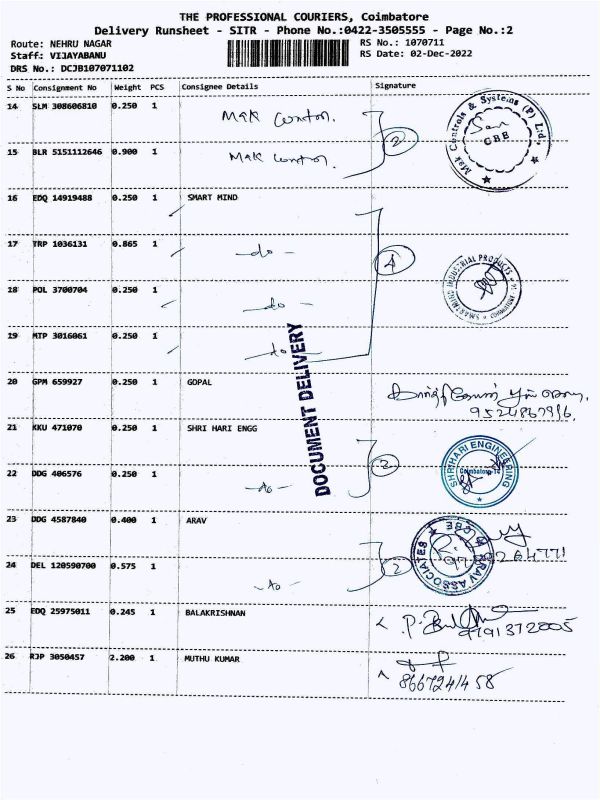 THE PROFESSIONAL COURIERS, Coimbatore
Delivery Runsheet - SITR - Phone No.:0422-3505555 - Page No.:2
Route: NEHRU NAGAR
Staff: VIJAYABANU
DRS No.: DCJB107071102
RS No.: 1070711
RS Date: 02-Dec-2022
S No Consignment No Weight PCS Consignee Details Signature
14 SLM 308606810 0.250 1 Mak Control.
15 BLR 5151112646 0.900 1 Mak Control.
2
Mak Controls & Systems (P) Ltd.
CBE
16 EDQ 14919488 0.250 1 SMART MIND
17 TRP 1036131 0.865 1 -do-
18 POL 3700704 0.250 1 -do-
19 MTP 3016061 0.250 1 -do-
4
SMARTMIND INDUSTRIAL PRODUCTS
COIMBATORE
20 GPM 659927 0.250 1 GOPAL
DOCUMENT DELIVERY
21 KKU 471070 0.250 1 SHRI HARI ENGG
22 DDG 406576 0.250 1 -do-
2
SHRIHARI ENGINEERING
Coimbatore-14
23 DDG 4587840 0.400 1 ARAV
24 DEL 120590700 0.575 1 -do-
2
ARAV ASSOCIATES
CBE
25 EDQ 25975011 0.245 1 BALAKRISHNAN
9791372005
26 RJP 3050457 2.200 1 MUTHU KUMAR
8667241458